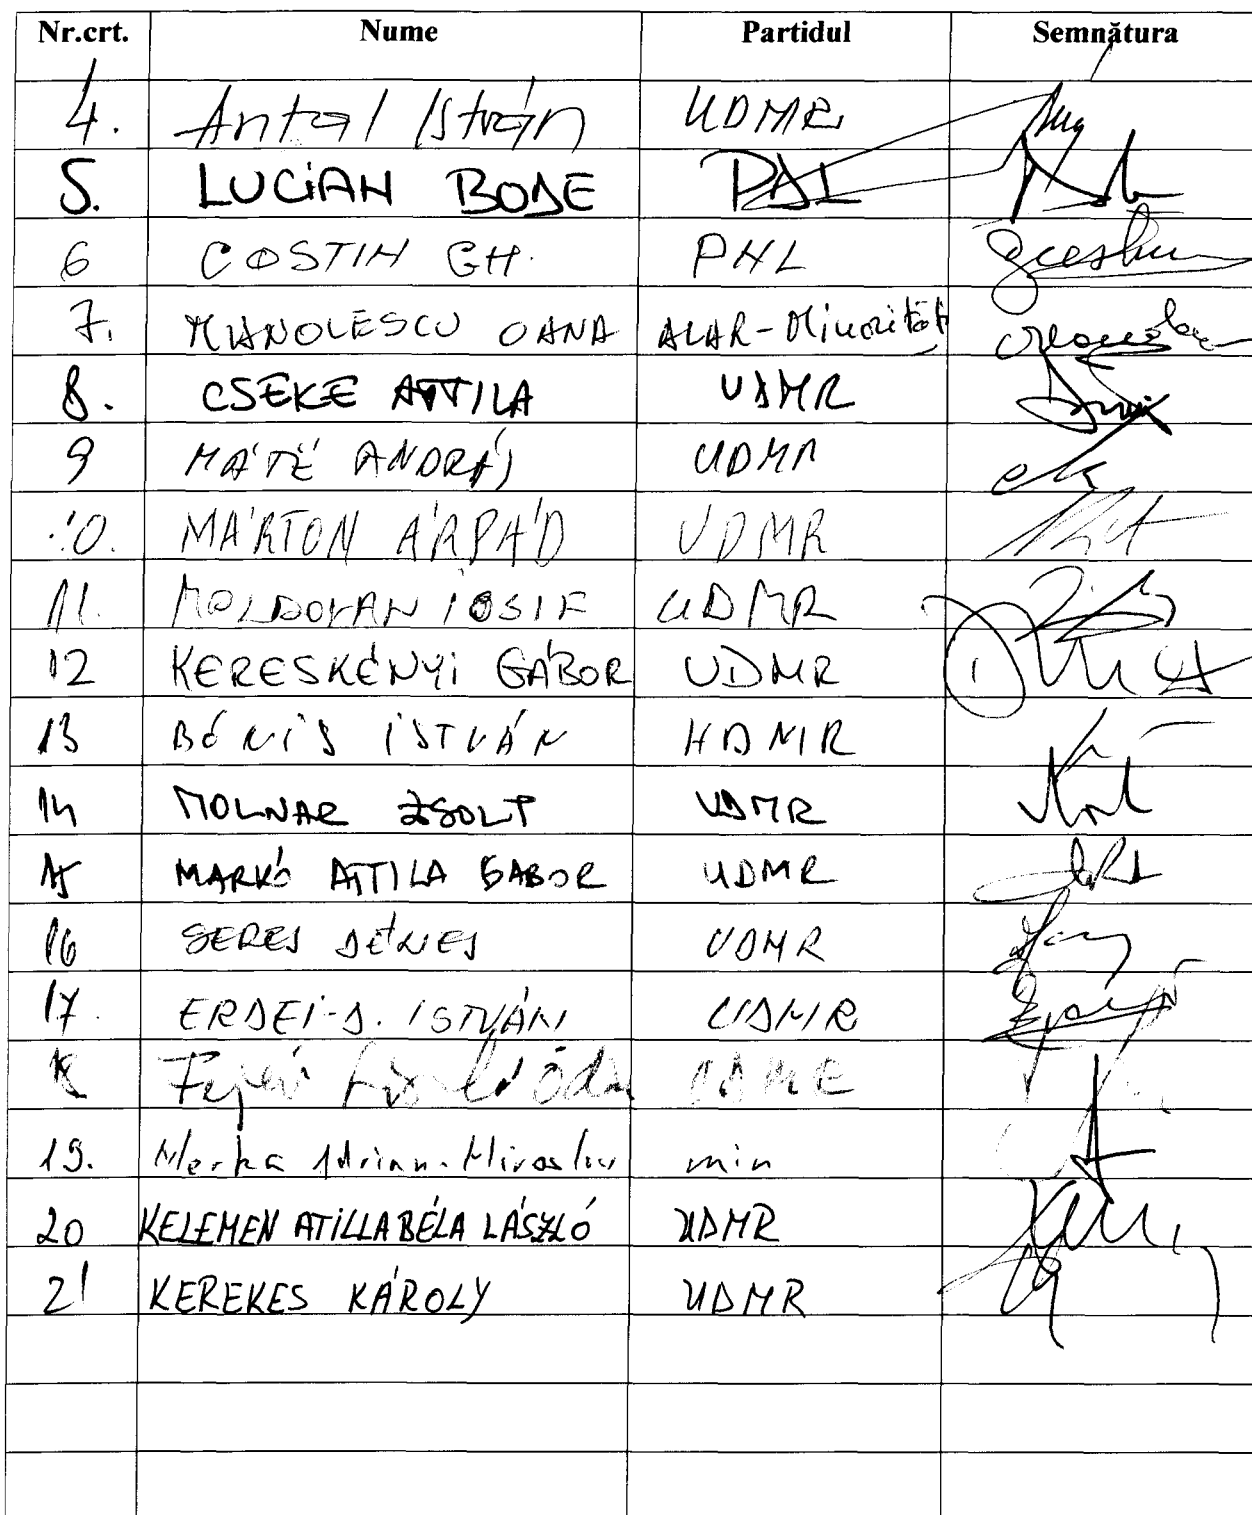 Nr.crt. Nume Partidul Semnătura
4. Antal István UDMR
5. LUCIAN BODE PDL
6 COSTIN GH. PNL
7. MANOLESCU OANA ALAR-Minorități
8. CSEKE ATTILA UDMR
9 MÁTÉ ANDRÁS UDMR
10. MÁRTON ÁRPÁD UDMR
11. MOLDOVAN IOSIF UDMR
12 KERESKÉNYI GÁBOR UDMR
13 BÓNIS ISTVÁN UDMR
14 MOLNAR ZSOLT UDMR
15 MARKÓ ATTILA GABOR UDMR
16 SERES DÉNES UDMR
17. ERDEI-D. ISTVÁN UDMR
18 UDMR
19. Merka Adrian-Miroslav min
20 KELEMEN ATILLA BÉLA LÁSZLÓ UDMR
21 KEREKES KÁROLY UDMR